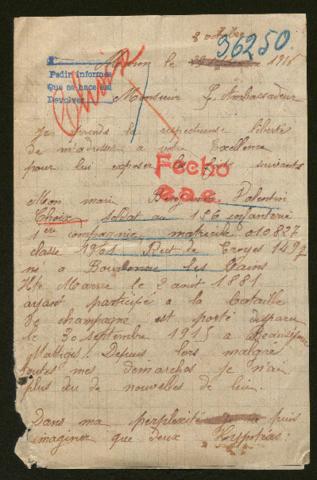 8 octobre
36250.
le 1916
Pedir informes
Que se hace así
Devolver
Choix
Monsieur L'Ambassadeur
Je prends la respectueuse liberté
de m'adresser a votre Excellence
pour lui exposer les faits suivants
Fecho
Mon mari Valentin
Choix soldat au 156 infanterie
1ère compagnie matricule 010827
classe 1901 Rect de Troyes 1497
né a Bourbonne les Bains
Hte Marne le 2 août 1881
ayant participé a la bataille
de champagne est porté disparu
le 30 septembre 1915 a
Depuis lors malgré
toutes mes demarches je n'ai
plus eu de nouvelles de lui.
Dans ma perplexité je puis
imaginer que deux